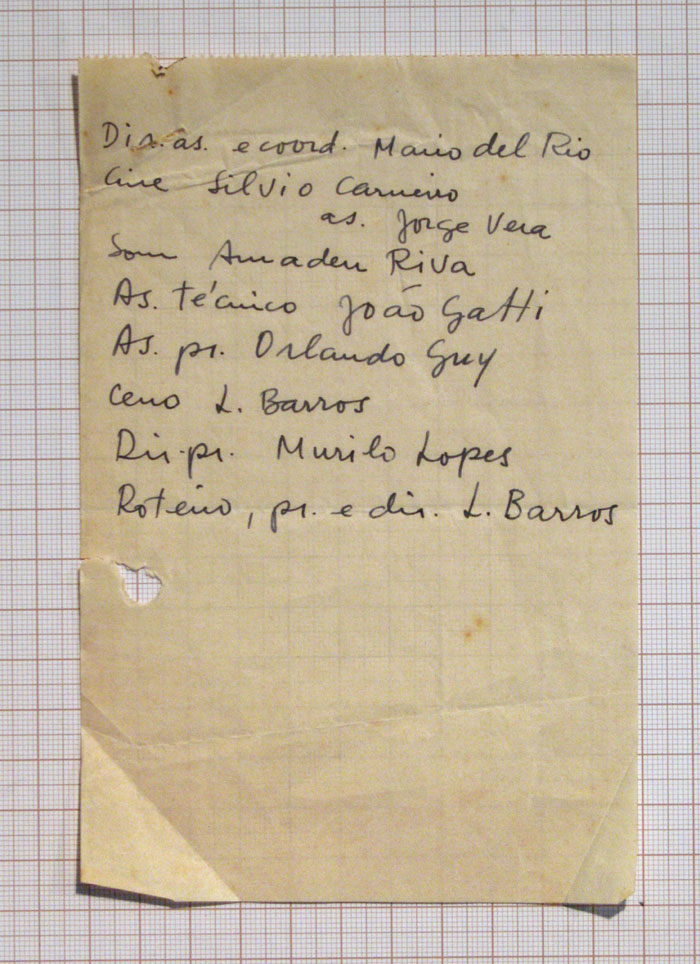 Dir. as. e coord. Mario del Rio
Cine Silvio Carneiro
as. Jorge Vera
Som Amadeu Riva
As. técnico João Gatti
As. pr. Orlando Guy
Ceno L. Barros
Dir. pr. Murilo Lopes
Roteiro, pr. e dir. L. Barros